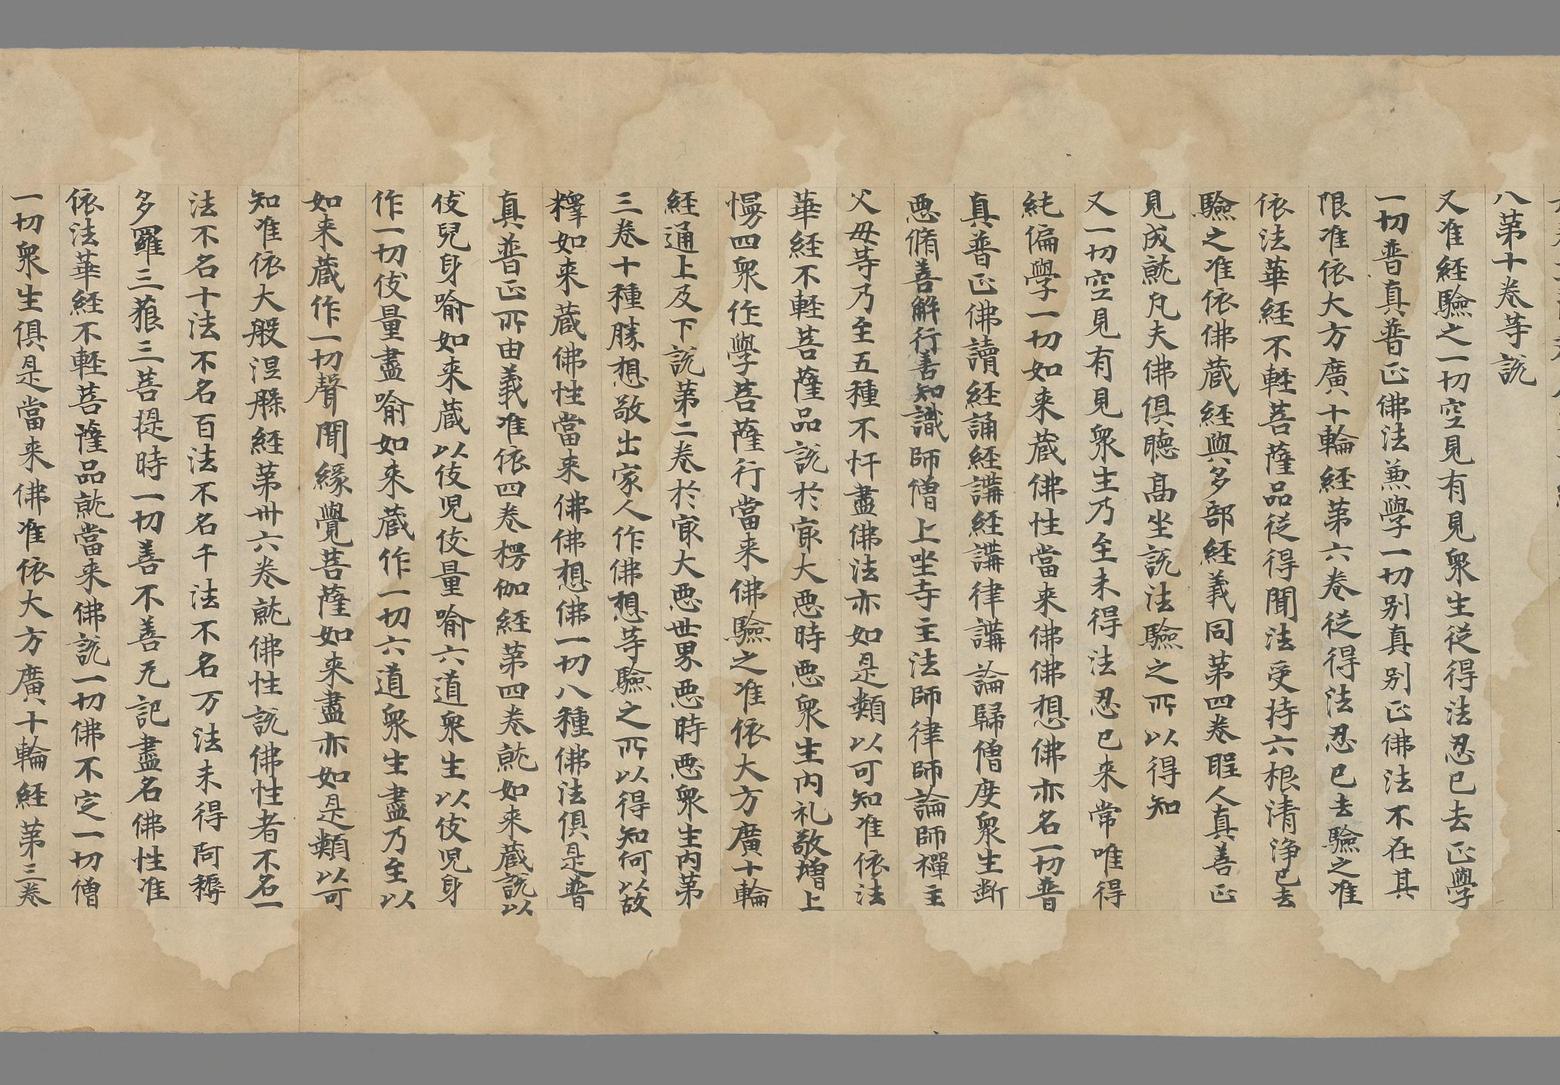 八第十卷等説
又准經驗之一切空見有見衆生從得法忍已去正學
一切普真普正佛法兼學一切别真别正佛法不在其
限准依大方廣十輪經第六卷從得法忍已去驗之准
依法華經不輕菩薩品從得聞法受持六根清淨已去
驗之准依佛藏經與多部經義同第四卷䁅人真善正
見成就凡夫佛俱聽高坐説法驗之所以得知
又一切空見有見衆生乃至未得法忍已來常唯得
純偏學一切如来藏佛性當来佛佛想佛亦名一切普
真普正佛讀經誦經講經講律講論歸僧度衆生断
惡脩善解行善知識師僧上坐寺主法師律師論師禪主
父母等乃至五種不忓盡佛法亦如是類以可知准依法
華經不輕菩薩品説於㝡大惡時惡衆生内礼敬增上
慢四衆作學菩薩行當来佛驗之准依大方廣十輪
經通上及下説第二卷於㝡大惡世界惡時惡衆生内第
三卷十種勝想敬出家人作佛想等驗之所以得知何以故
釋如来藏佛性當来佛佛想佛一切八種佛法俱是普
真普正所由義准依四卷楞伽經第四卷說如来藏説以
伎兒身喻如来藏以伎児伎量喻六道衆生以伎児身
作一切伎量盡喻如来藏作一切六道衆生盡乃至以
如来藏作一切聲聞緣覺菩薩如来盡亦如是類以可
知准依大般涅槃經第卅六卷說佛性説佛性者不名一
法不名十法不名百法不名千法不名万法未得阿耨
多羅三藐三菩提時一切善不善无記盡名佛性准
依法華經不輕菩薩品說當来佛説一切佛不定一切僧
一切衆生俱是當来佛准依大方廣十輪經第三卷